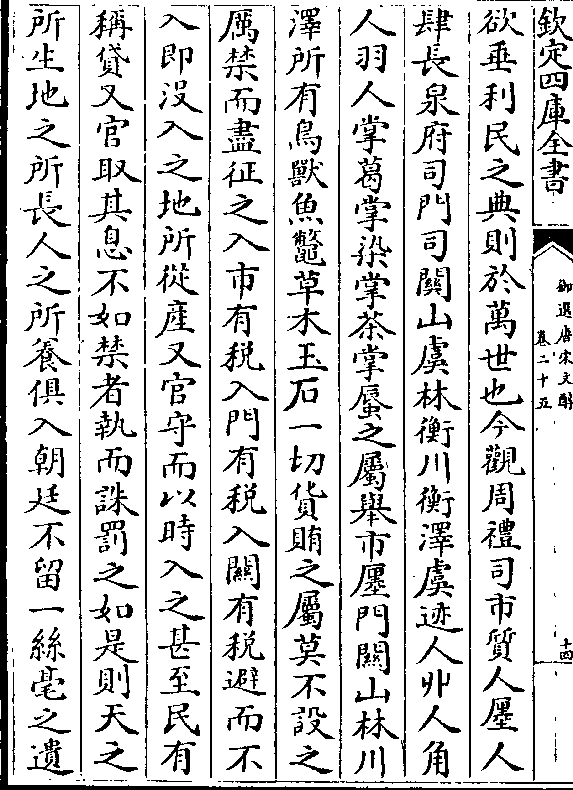 欽定四庫全書
御選唐宋文醇
卷二十五
十四
欲垂利民之典則於萬世也今觀周禮司市質人廛人
肆長泉府司門司關山虞林衡川衡澤虞迹人丱人角
人羽人掌葛掌染掌荼掌蜃之屬舉市廛門關山林川
澤所有鳥獸魚鼈草木玉石一切貨賄之屬莫不設之
厲禁而盡征之入市有税入門有税入關有税避而不
入即没入之地所從產又官守而以時入之甚至民有
稱貸又官取其息不如禁者執而誅罰之如是則天之
所生地之所長人之所養俱入朝廷不留一絲毫之遺